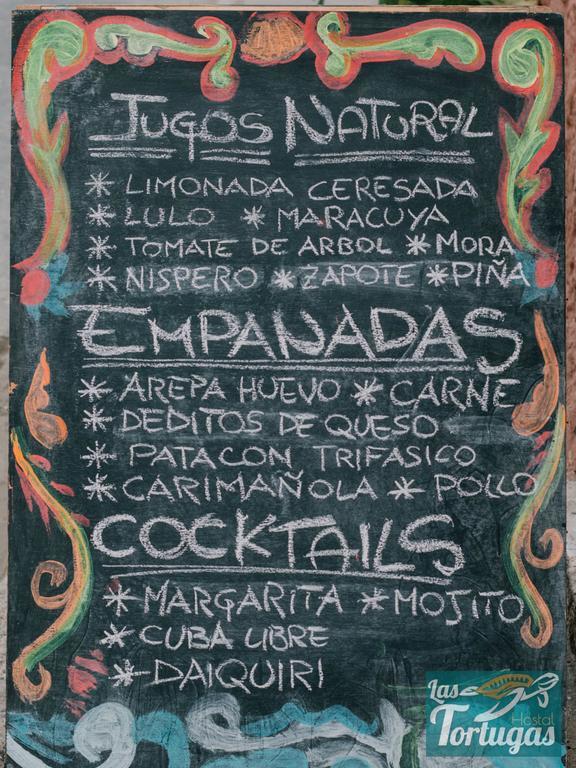 JUGOS NATURAL
* LIMONADA CERESADA
* LULO * MARACUYA
* TOMATE DE ARBOL * MORA
* NISPERO * ZAPOTE * PIÑA
EMPANADAS
* AREPA HUEVO * CARNE
* DEDITOS DE QUESO
* PATACON TRIFASICO
* CARIMAÑOLA * POLLO
COCKTAILS
* MARGARITA * MOJITO
* CUBA LIBRE
* DAIQUIRI
Las
Hostal
Tortugas